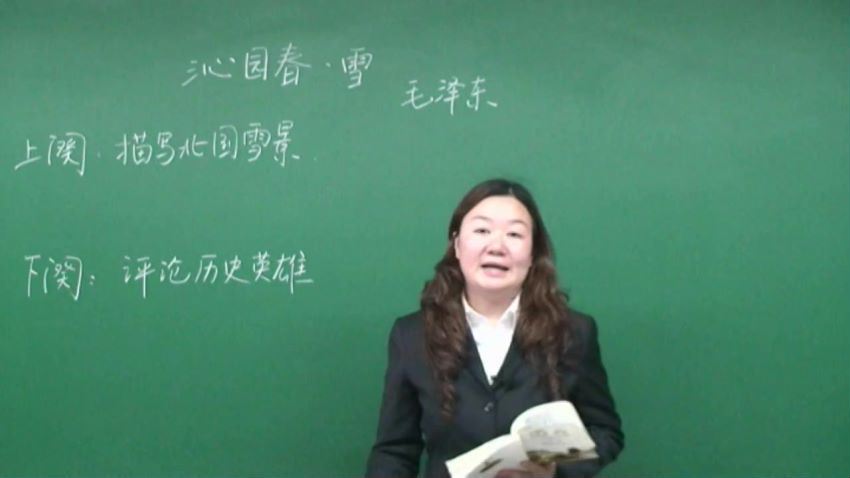 沁园春·雪
毛泽东
上阕·描写北国雪景.
下阕：评论历史英雄